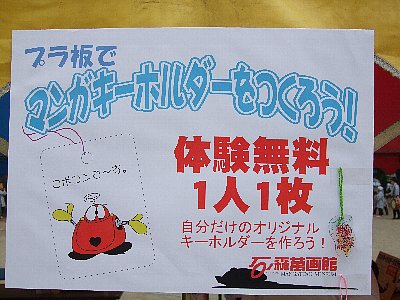 プラ板で
マンガキーホルダーをつくろう!
コポリンの〜ず。
体験無料
1人1枚
自分だけのオリジナル
キーホルダーを作ろう!
石ノ森萬画館